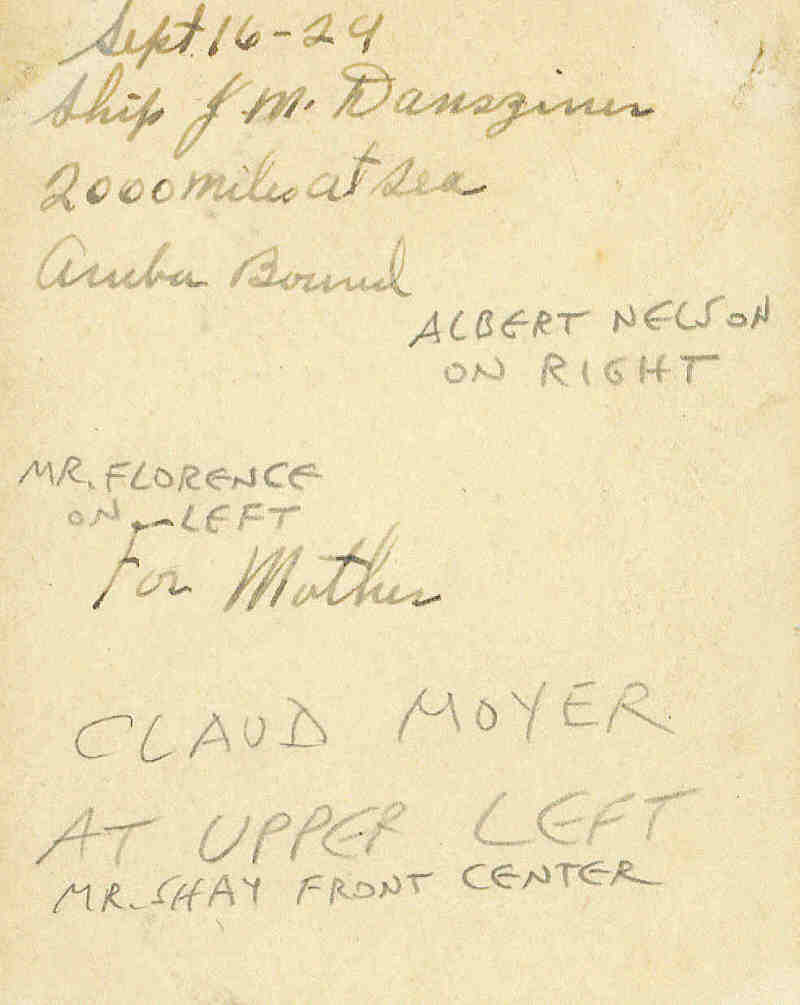 Sept. 16-24
Ship J. M. Dansziner
2000 miles at sea
Aruba Bound
ALBERT NELSON
ON RIGHT
MR. FLORENCE
ON LEFT
For Mother
CLAUD MOYER
AT UPPER LEFT
MR. SHAY FRONT CENTER